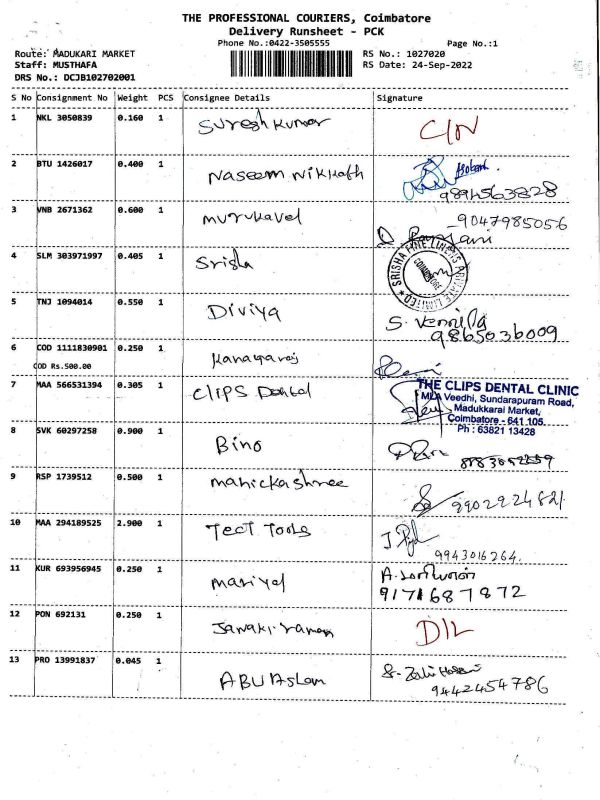 THE PROFESSIONAL COURIERS, Coimbatore
Delivery Runsheet - PCK
Phone No.:0422-3505555 Page No.:1
Route: MADUKARI MARKET RS No.: 1027020
Staff: MUSTHAFA RS Date: 24-Sep-2022
DRS No.: DCJB102702001
S No Consignment No Weight PCS Consignee Details Signature
1 NKL 3050839 0.160 1 Sureshkumar C/N
2 BTU 1426017 0.400 1 Naseem Nikkath
9894563828
3 VNB 2671362 0.600 1 Murukavel 9047985056
4 SLM 303971997 0.405 1 Srisha
COIMBATORE
5 TNJ 1094014 0.550 1 Diviya S. Vennila
9865036009
6 COD 1111830901 0.250 1 Kanagaraj
COD Rs.500.00
7 MAA 566531394 0.305 1 CLIPS Dental THE CLIPS DENTAL CLINIC
MLA Veedhi, Sundarapuram Road,
Madukkarai Market,
Coimbatore - 641 105.
Ph : 63821 13428
8 SVK 60297258 0.900 1 Bino
9 RSP 1739512 0.500 1 Manickashree
9902924821
10 MAA 294189525 2.900 1 Tect Tools
9943016264.
11 KUR 693956945 0.250 1 Mariyal
9171687872
12 PON 692131 0.250 1 Janakiraman D/L
13 PRO 13991837 0.045 1 ABU Aslam
9442454786